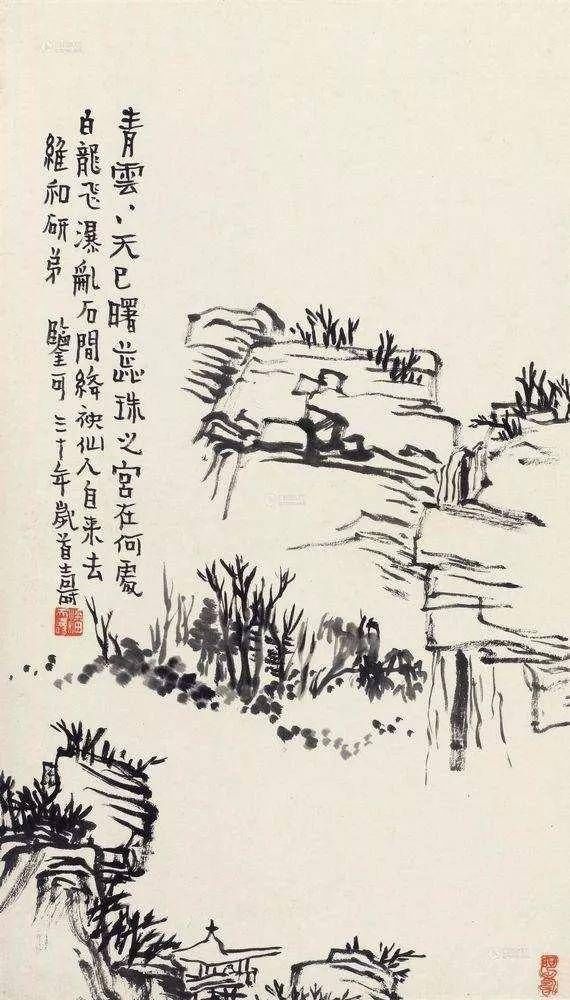 青雲、、天已曙蕊珠之宮在何處
白龍飛瀑亂石間絳袂仙人自来去
維和研弟 鑒可 三十年歲首壽